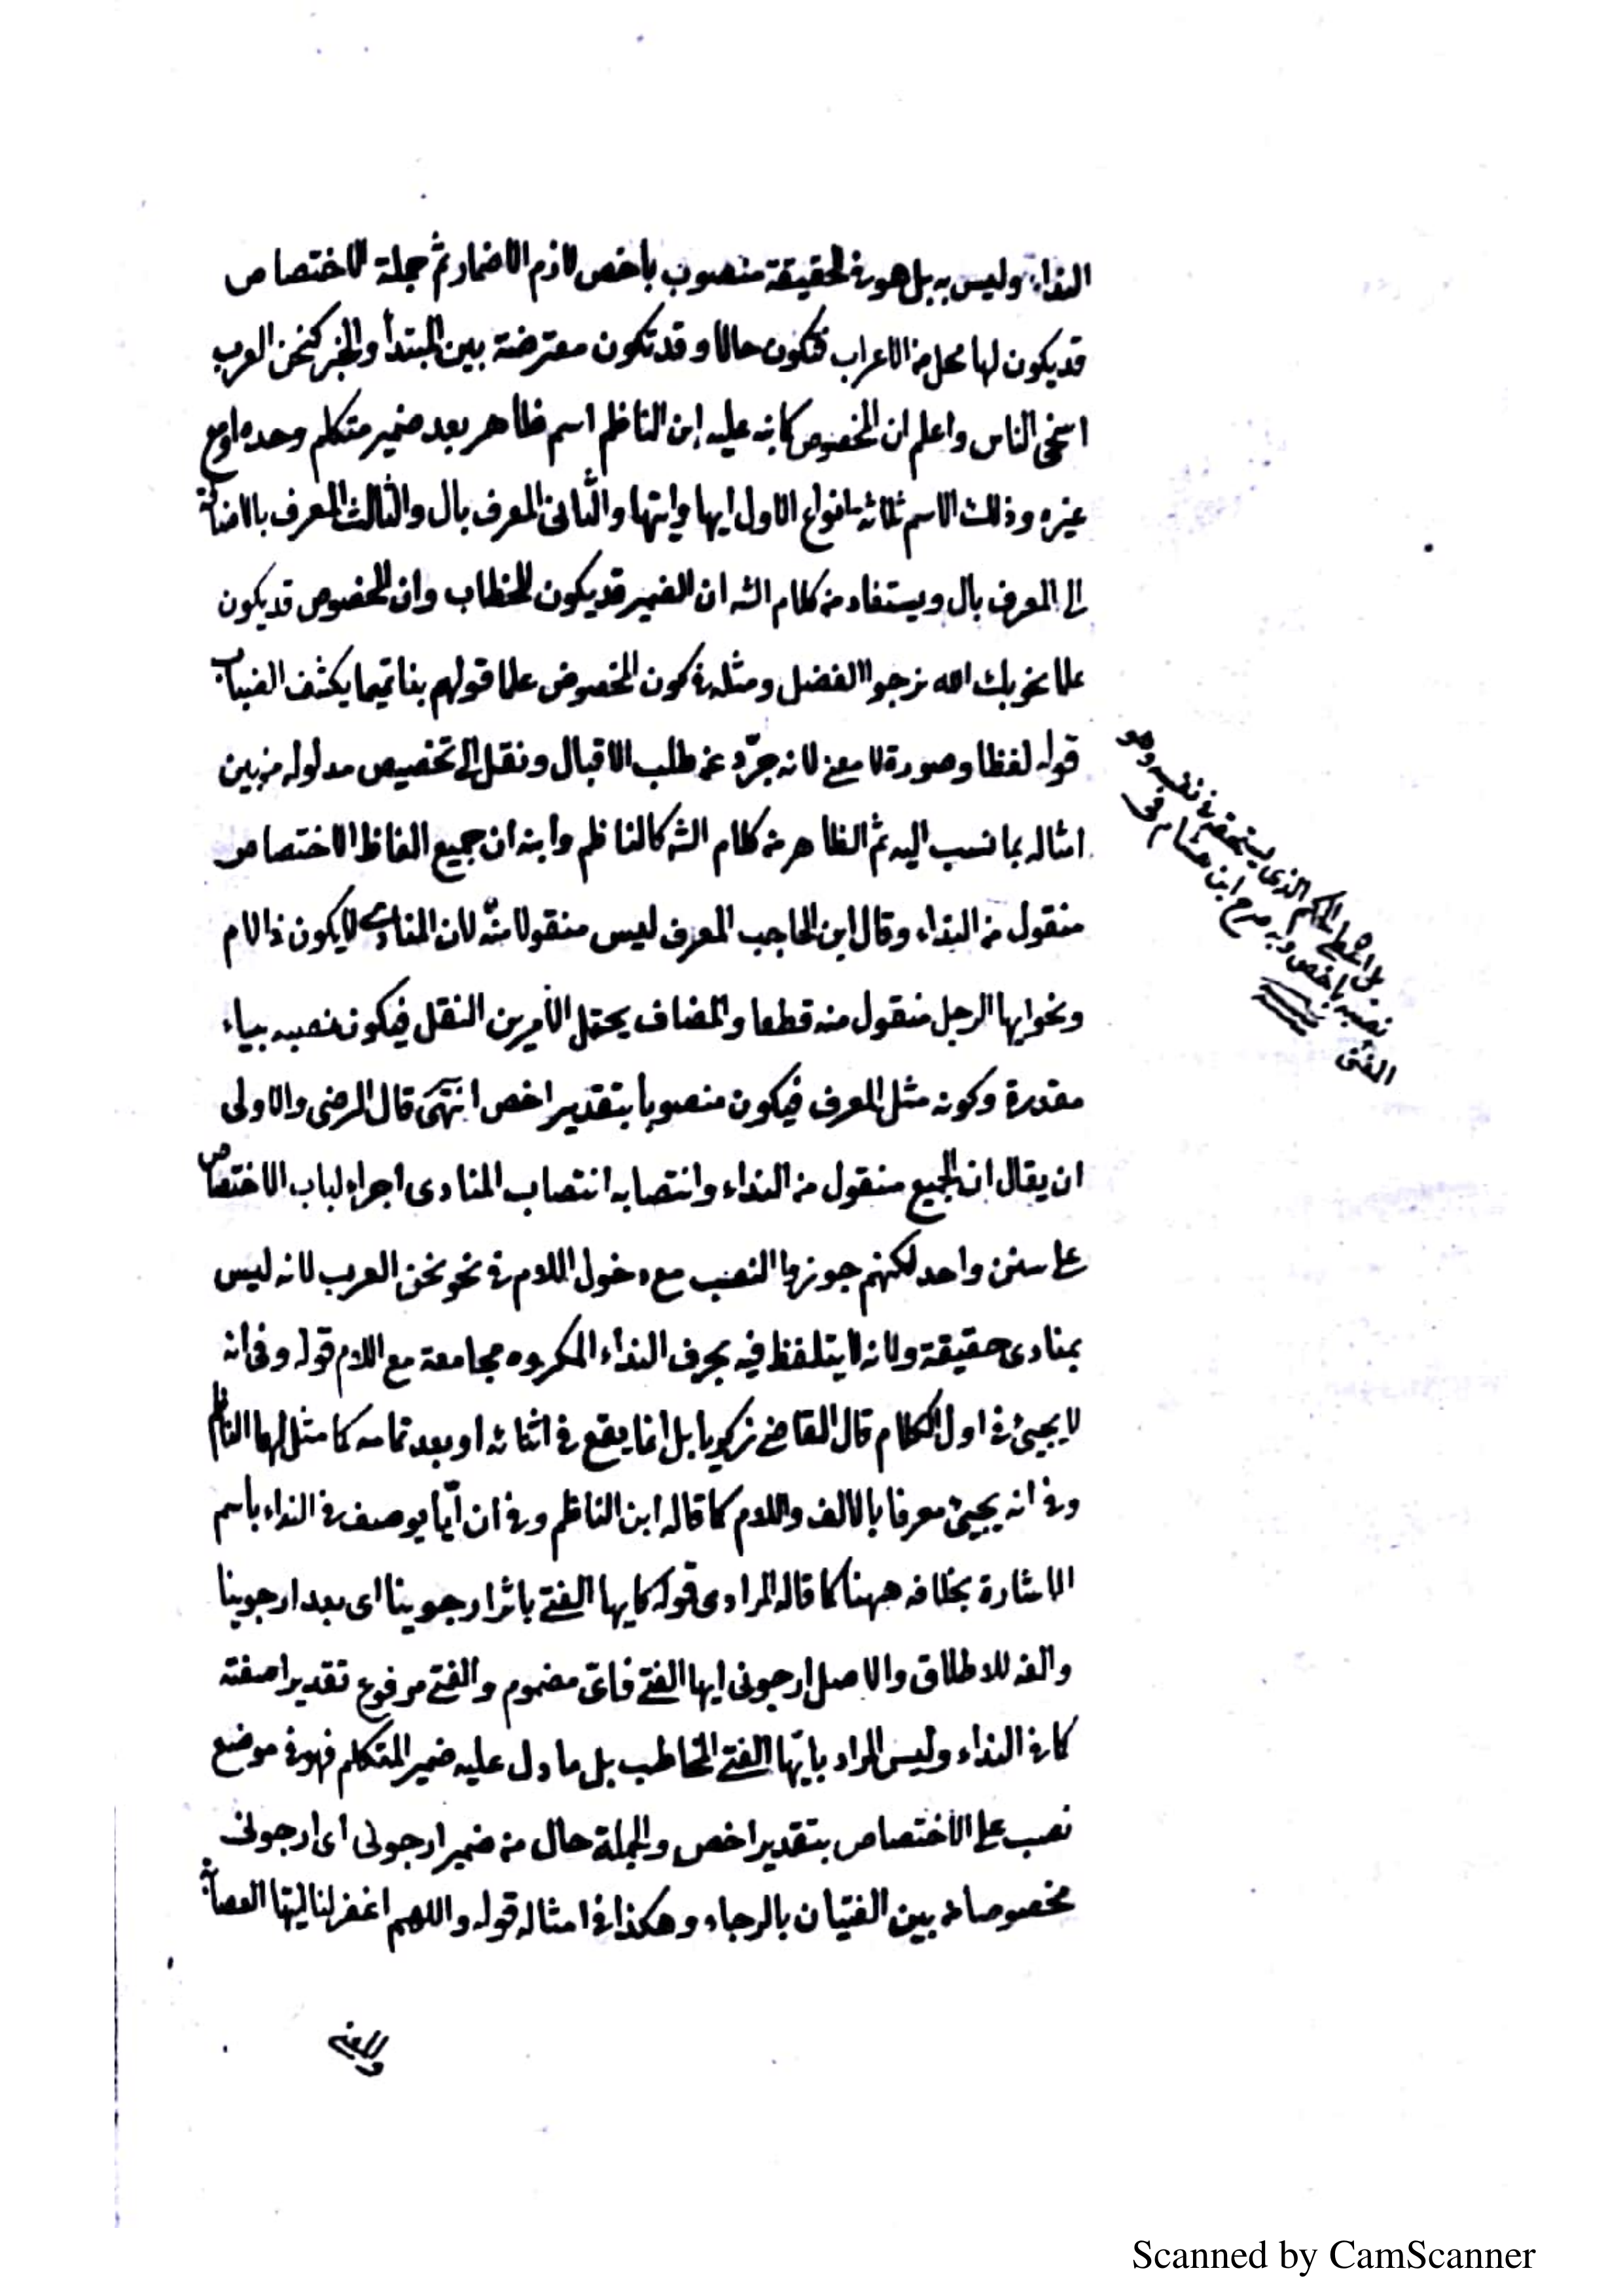 النداء وليس به بل هو فى الحقيقة منصوب باخص لازم الاضمار ثم جملة الاختصاص
قد يكون لها محل من الاعراب فتكون حالا وقد تكون معترضة بين المبتدأ والخبر كنحن العرب
اسخى الناس واعلم ان المخصوص كما نبه عليه ابن الناظم اسم ظاهر بعد ضمير متكلم وحده او مع
غيره وذلك الاسم ثلاثة انواع الاول ايها وايتها والثانى المعرف بال والثالث المعرف بالاضافة
الى المعرف بال ويستفاد من كلام الش ان الضمير قد يكون للخطاب وان المخصوص قد يكون
علما نحو بك الله نرجوا الفضل ومثله فى كون المخصوص علما قولهم بنا تميما يكشف الضباب
قوله لفظا وصورة لا معنى لانه جرّد عن طلب الاقبال ونقل الى تخصيص مدلوله من بين
امثاله بما نسب اليه ثم الظاهر من كلام الش كالناظم وابنه ان جميع الفاظ الاختصاص
منقول من النداء وقال ابن الحاجب المعرف ليس منقولا منه لان المنادى لا يكون ذا لام
ونحو ايها الرجل منقول منه قطعا والمضاف يحتمل الأمرين النقل فيكون نصبه بياء
مقدرة وكونه مثل المعرف فيكون منصوبا بتقدير اخص انتهى قال الرضى والاولى
ان يقال ان الجميع منقول من النداء وانتصابه انتصاب المنادى اجراء لباب الاختصاص
على سنن واحد لكنهم جوزوا النصب مع دخول اللام فى نحو نحن العرب لانه ليس
بمنادى حقيقة ولانه لا يتلفظ فيه بحرف النداء المكروه مجامعة مع اللام قوله وفى انه
لا يجيئ فى اول الكلام قال القاضى زكريا بل انما يقع فى اثنائه او بعد تمامه كما مثل لهما الناظم
وفى انه يجيئ معرفا بالالف واللام كما قاله ابن الناظم وفى ان أيّا يوصف فى النداء باسم
الاشارة بخلافه ههنا كما قاله المرادى قوله كايها الفتى باثر ارجوينا اى بعد ارجوينا
والفه للاطلاق والاصل ارجونى ايها الفتى فاىّ مضموم والفتى مرفوع تقديرا صفته
كما فى النداء وليس المراد بايّها الفتى المخاطب بل ما دل عليه ضمير المتكلم فهو فى موضع
نصب على الاختصاص بتقدير اخص والجملة حال من ضمير ارجونى اى ارجونى
مخصوصا من بين الفتيان بالرجاء وهكذا فى امثاله قوله واللهم اغفر لنا ايتها العصابة
الحكم الذى يستحقه فى نفسه وهو
نصبه باخص وبه صرح ابن هشام فى